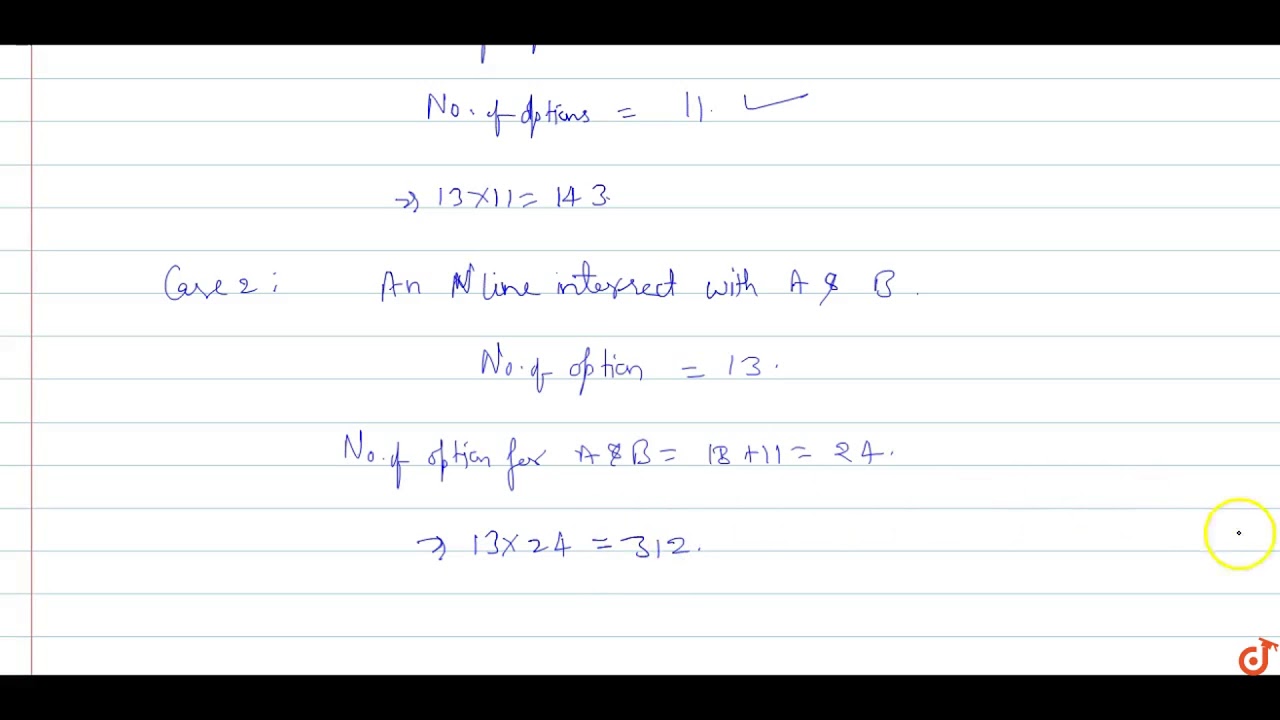 No. of options = 11.
⇒ 13×11 = 143.
Case 2: An N line intersect with A & B.
No. of option = 13.
No. of option for A & B = 13 + 11 = 24.
⇒ 13×24 = 312.